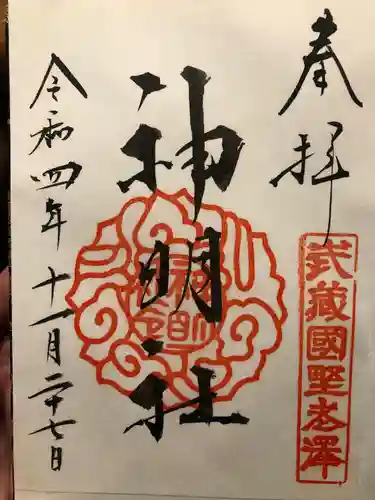 奉拝
武蔵國野老澤
神明社
令和四年十一月二十七日